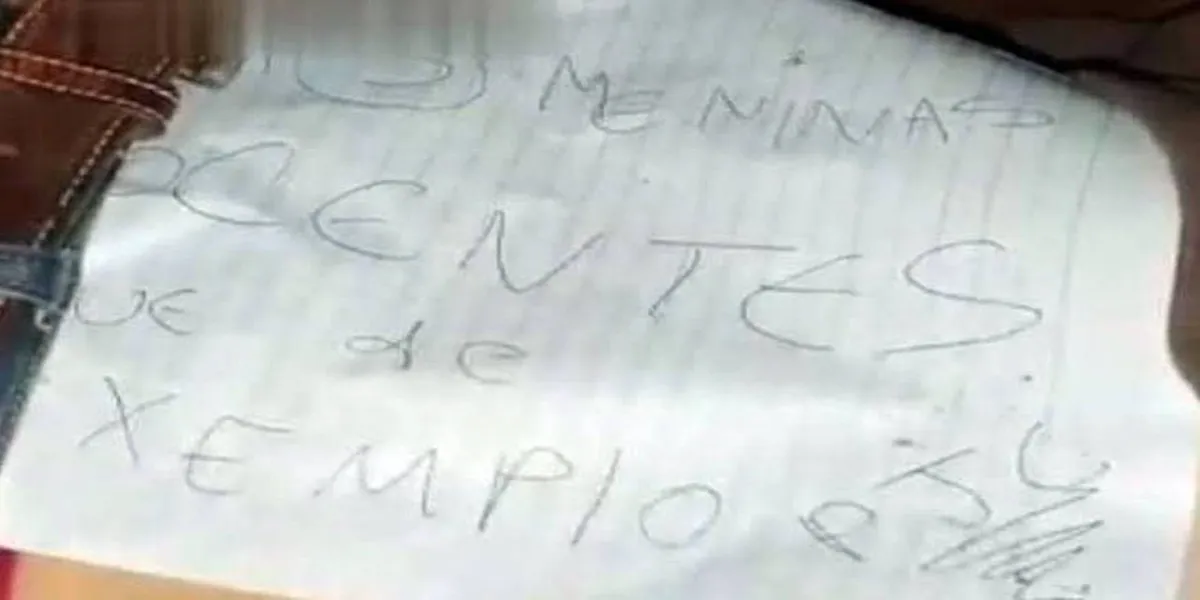 MENINAS
CENTES
UE de
XEMPlO e